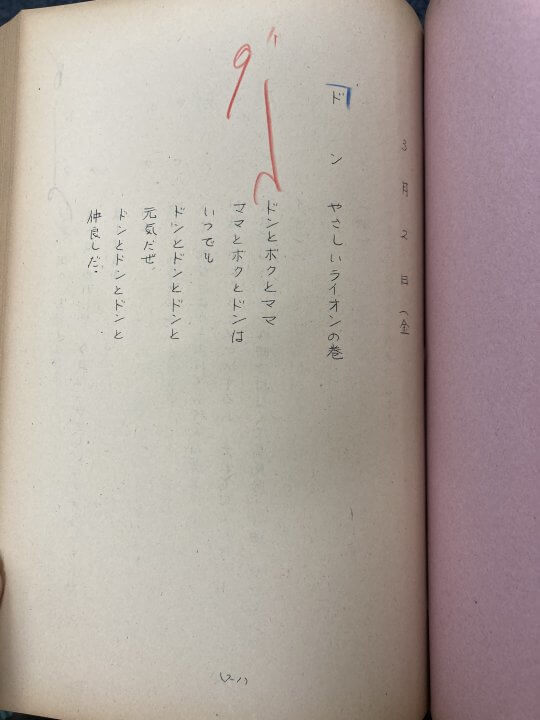 3月2日(金
ドン やさしいライオンの巻
ドンとボクとママ
ママとボクとドンは
いつでも
ドンとドンとドンと
元気だぜ
ドンとドンとドンと
仲良しだ。
9"
(2-1)